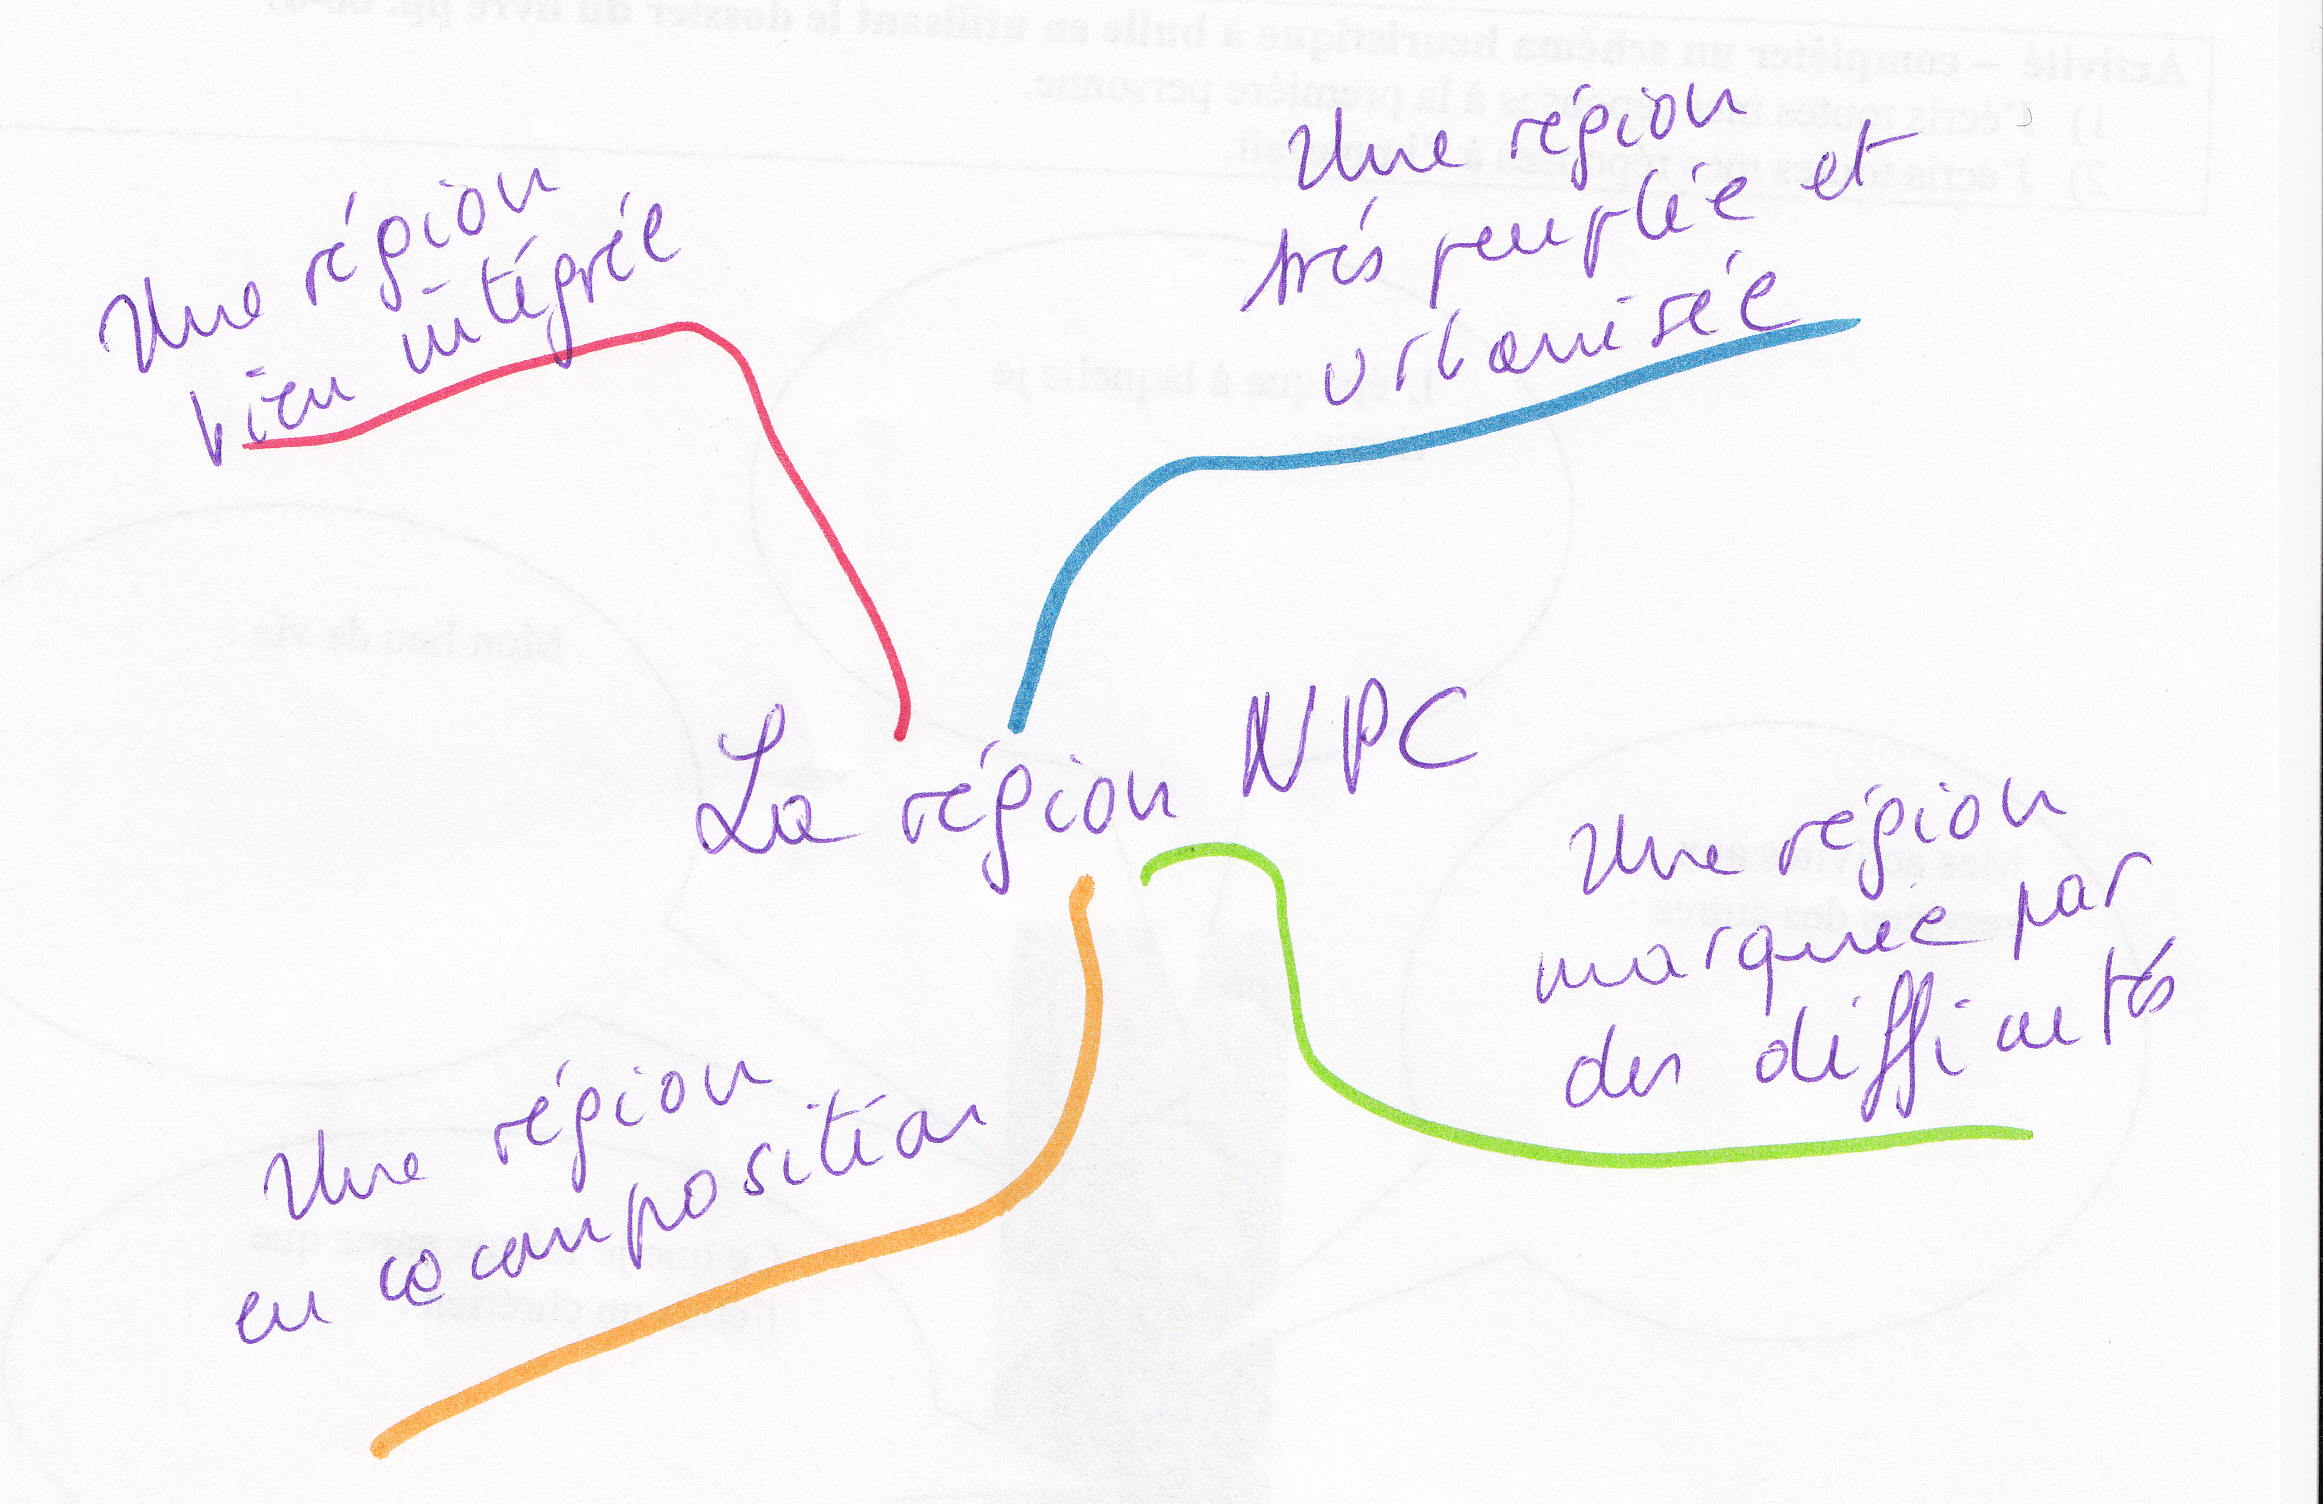 Une région
bien intégrée
Une région
très peuplée et
urbanisée
La région NPC
Une région
marquée par
des difficultés
Une région
en recomposition
Mon lieu de vie :